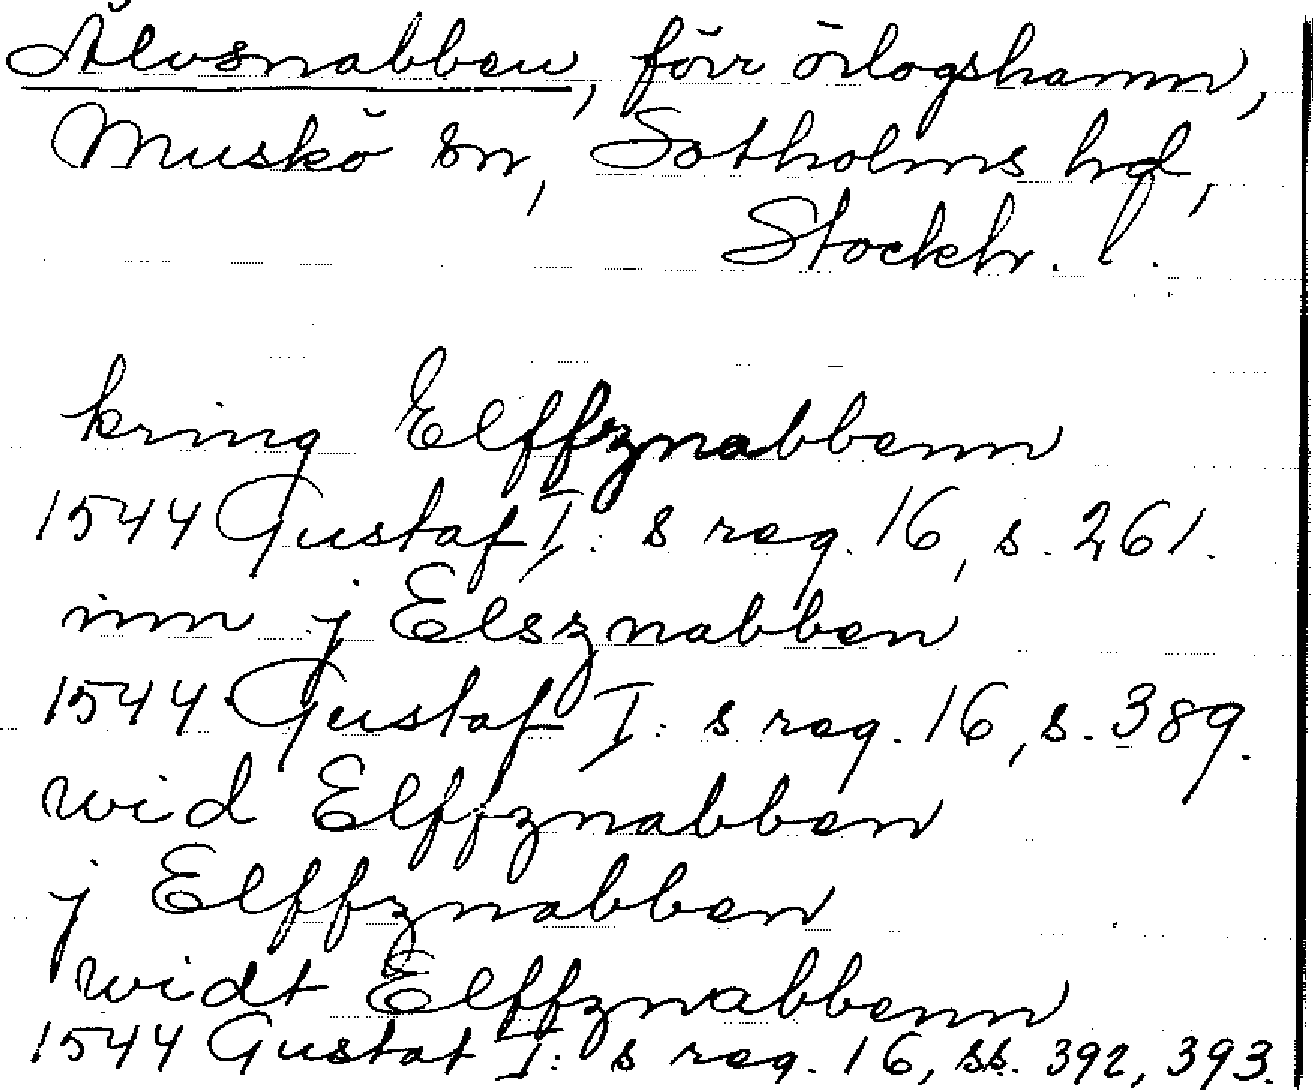 Älvsnabben, förr örlogshamn,
Muskö sn, Sotholms hd,
Stockh. l.
kring Elffznabbenn
1544 Gustaf I: s reg. 16, s. 261.
inn j Elsznabben
1544 Gustaf I: s reg. 16, s. 389.
wid Elffznabben
j Elffznabben
widt Elffznabbenn
1544 Gustaf I: s reg. 16, ss. 392, 393.